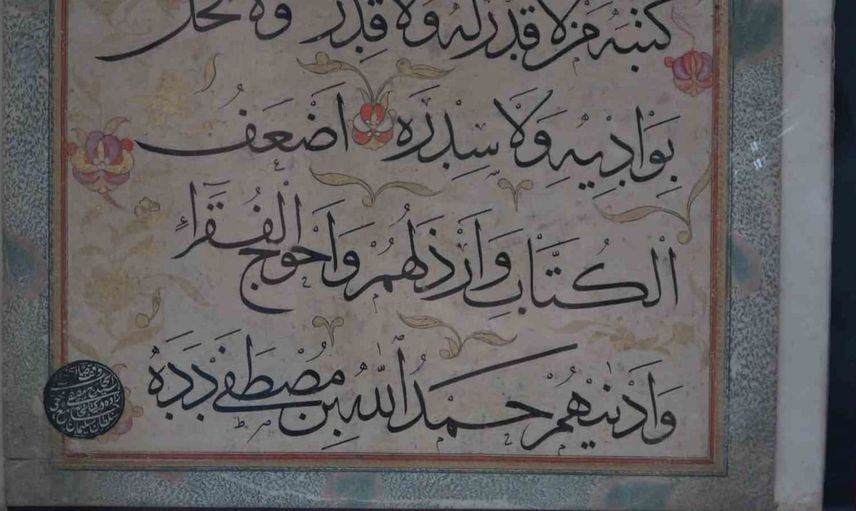 كتبه من لا قدر له ولا قدر ولا نخل
بِوَادِيهِ وَلَا سِدْرَه اَضْعَفُ
اَلْكُتَّابِ وَاَرْذَلُهُمْ وَاَحْوَجُ الْفُقَرَاءِ
وَاَدْنٰيهُمْ حَمْدُ اللّٰهِ بِنْ مُصْطَفٰى دَدَهْ